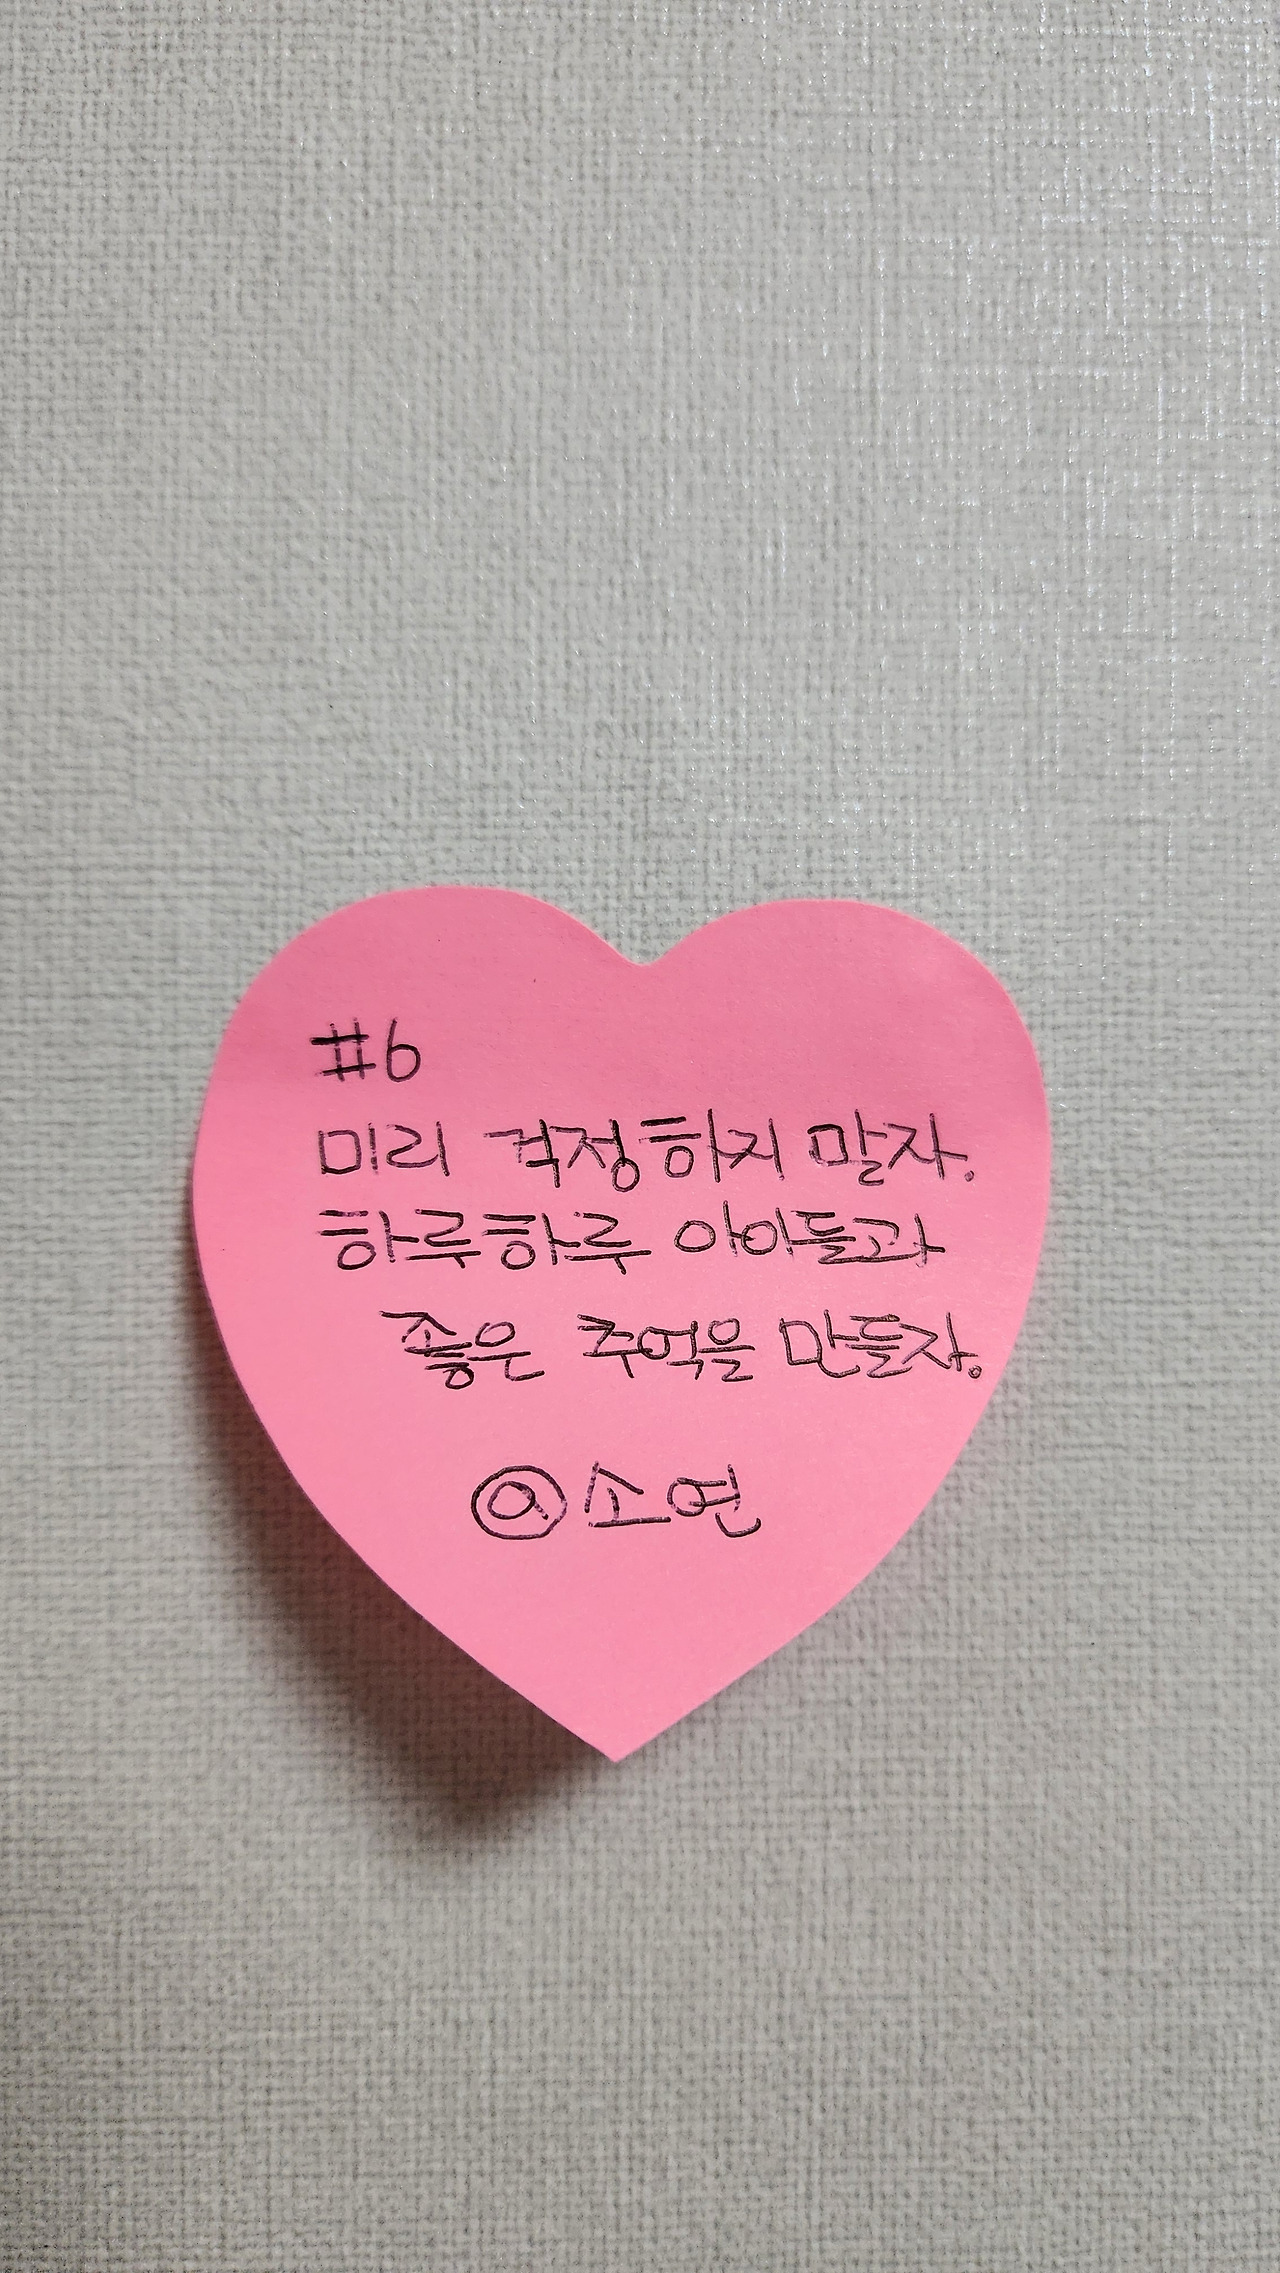 #6
미리 걱정하지 말자.
하루하루 아이들과
좋은 추억을 만들자.
@소연